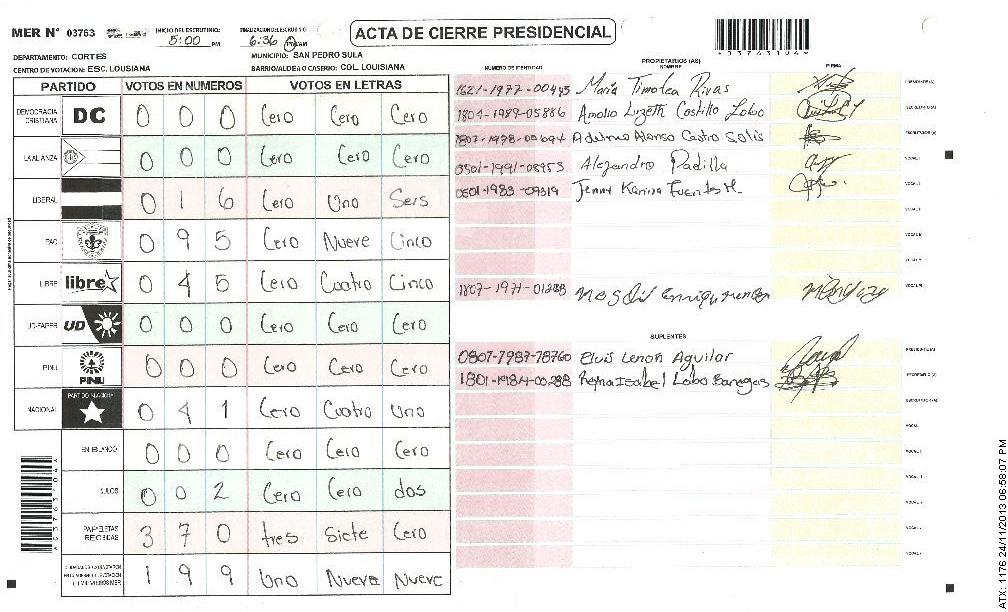 MER N° 03763
INICIO DEL ESCRUTINIO: 5:00 PM
FINALIZACION DEL ESCRUTINIO: 6:36 PM
ACTA DE CIERRE PRESIDENCIAL
DEPARTAMENTO: CORTES
MUNICIPIO: SAN PEDRO SULA
CENTRO DE VOTACION: ESC. LOUSIANA
BARRIO/ALDEA O CASERIO: COL. LOUISIANA
PARTIDO VOTOS EN NUMEROS VOTOS EN LETRAS
DEMOCRACIA CRISTIANA DC 0 0 0 Cero Cero Cero
LA ALIANZA 0 0 0 Cero Cero Cero
LIBERAL 0 1 6 Cero Uno Seis
PAC 0 9 5 Cero Nueve Cinco
LIBRE libre 0 4 5 Cero Cuatro Cinco
UD-FAPER UD 0 0 0 Cero Cero Cero
PINU PINU 0 0 0 Cero Cero Cero
NACIONAL PARTIDO NACIONAL 0 4 1 Cero Cuatro Uno
EN BLANCO 0 0 0 Cero Cero Cero
NULOS 0 0 2 Cero Cero dos
PAPELETAS RECIBIDAS 3 7 0 tres Siete Cero
1 9 9 Uno Nueve Nueve
NUMERO DE IDENTIDAD
PROPIETARIOS (AS)
NOMBRE
FIRMA
1621-1977-00445 Maria Timotea Rivas PRESIDENTE(A)
1804-1989-05886 Amalia Lizeth Castillo Lobo SECRETARIO(A)
Adelmo Alonso Castro Solis ESCRUTADOR(A)
0501-1991-08953 Alejandro Padilla VOCAL I
0501-1983-09319 Jenny Karina Fuentes M. VOCAL
1807-1971-01288
SUPLENTES
0807-7987-78760 Elvis Lenon Aguilar PRESIDENTE(A)
1801-1984-00288 Reyna Isabel Lobo Banegas SECRETARIO(A)
ESCRUTADOR(A)
VOCAL
ATX: 1176 24/11/2013 06:58:07 PM